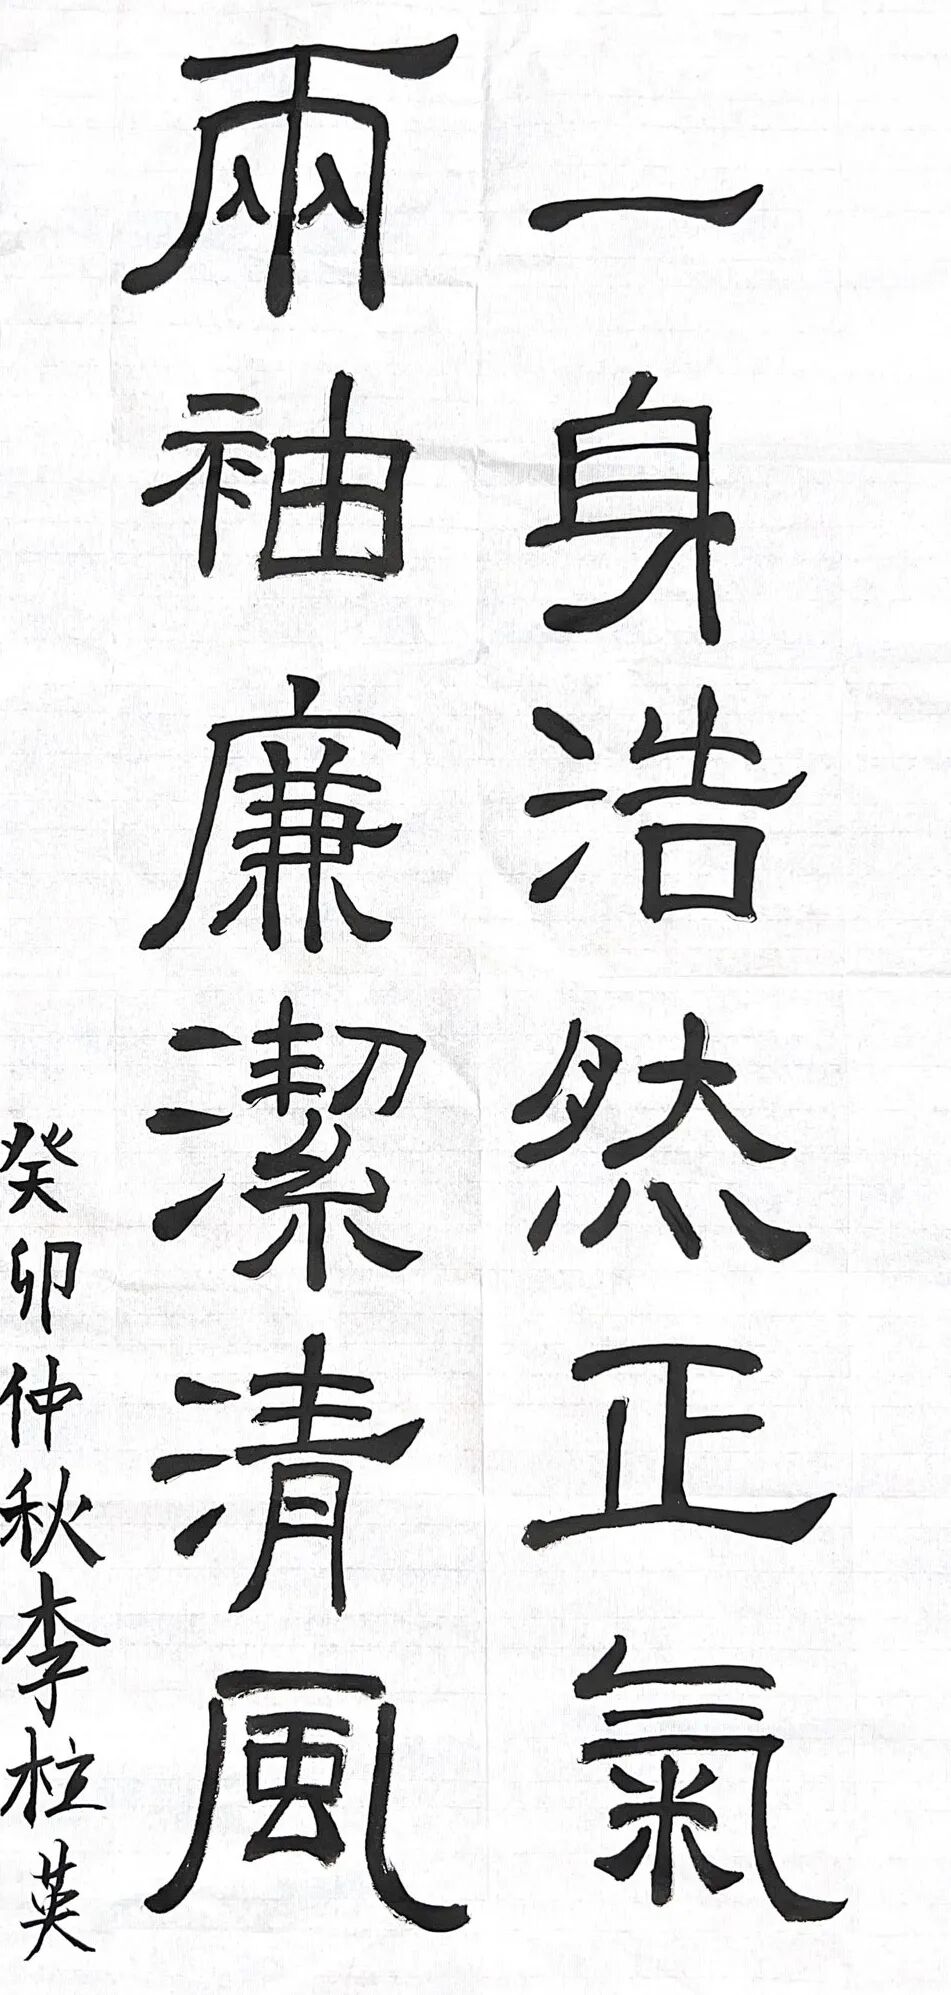 一身浩然正氣
兩袖廉潔清風
癸卯仲秋李柱英